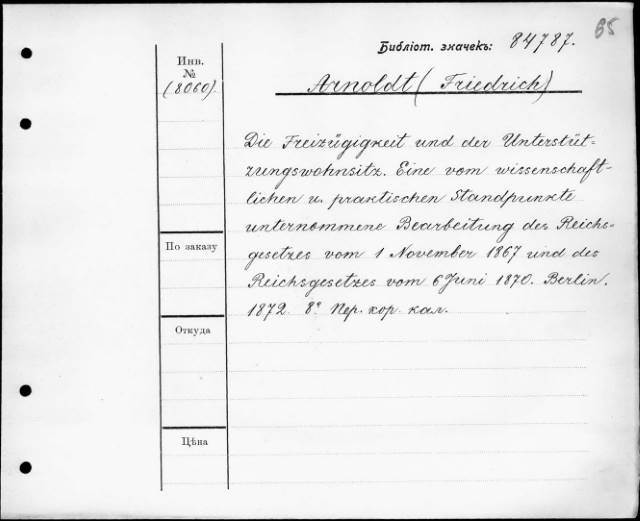 65
Библіот. значекъ: 84787.
Инв.
№
(8060).
Arnoldt (Friedrich)
Die Freizügigkeit und der Unterstüt=
zungswohnsitz. Eine vom wissenschaft-
lichen u. praktischen Standpunkte
unternommene Bearbeitung des Reichs-
gesetzes vom 1 November 1867 und des
Reichsgesetzes vom 6 Juni 1870. Berlin.
1872. 8° Пер. кор. кал.
По заказу
Откуда
Цѣна